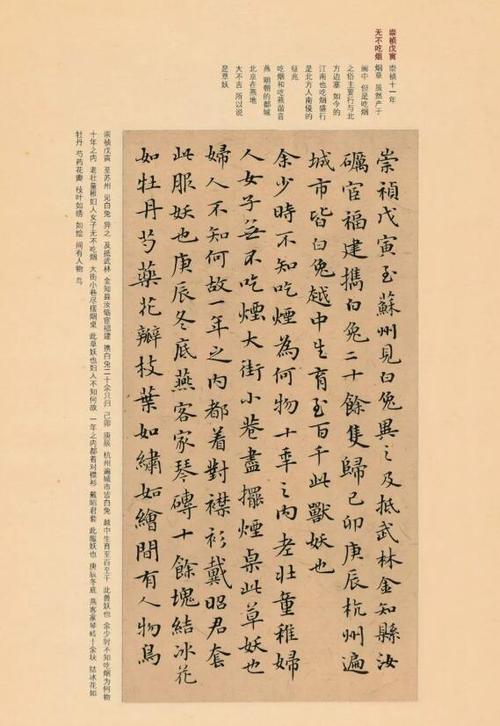 崇祯戊寅
无不吃烟
崇祯十一年
烟草 虽然产于
闽中 但是吃烟
之俗主要行与北
方边塞 如今的
江南也吃烟盛行
是北方人南侵的
征兆
吃烟和吃燕谐音
燕 明朝的都城
北京在燕地
大不吉 所以说
是草妖
崇禎戊寅至蘇州見白兔異之及抵武林金知縣汝
礪官福建攜白兔二十餘隻歸己卯庚辰杭州遍
城市皆白兔越中生育至百千此獸妖也
余少時不知吃煙為何物十年之內老壯童稚婦
人女子無不吃煙大街小巷盡擺煙桌此草妖也
婦人不知何故一年之內都着對襟衫戴昭君套
此服妖也庚辰冬底燕客家琴磚十餘塊結冰花
如牡丹芍藥花瓣枝葉如繡如繪間有人物鳥
崇祯戊寅 至苏州 见白兔 异之 及抵武林 金知县汝砺官福建 携白兔二十余只归 己卯 庚辰 杭州遍城市皆白兔 越中生育至百至千 此兽妖也 余少时不知吃烟为何物
十年之内 老壮童稚妇人女子无不吃烟 大街小巷尽摆烟桌 此草妖也 妇人不知何故 一年之内都着对襟衫 戴昭君套 此服妖也 庚辰冬底 燕客家琴砖十余块 结冰花如
牡丹 芍药花瓣 枝叶如绣 如绘 间有人物 鸟